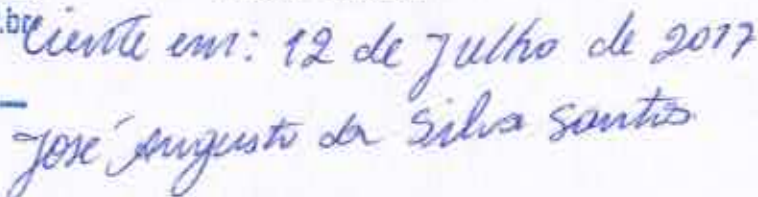 .br
Ciente em: 12 de Julho de 2017
José Augusto da Silva Santos